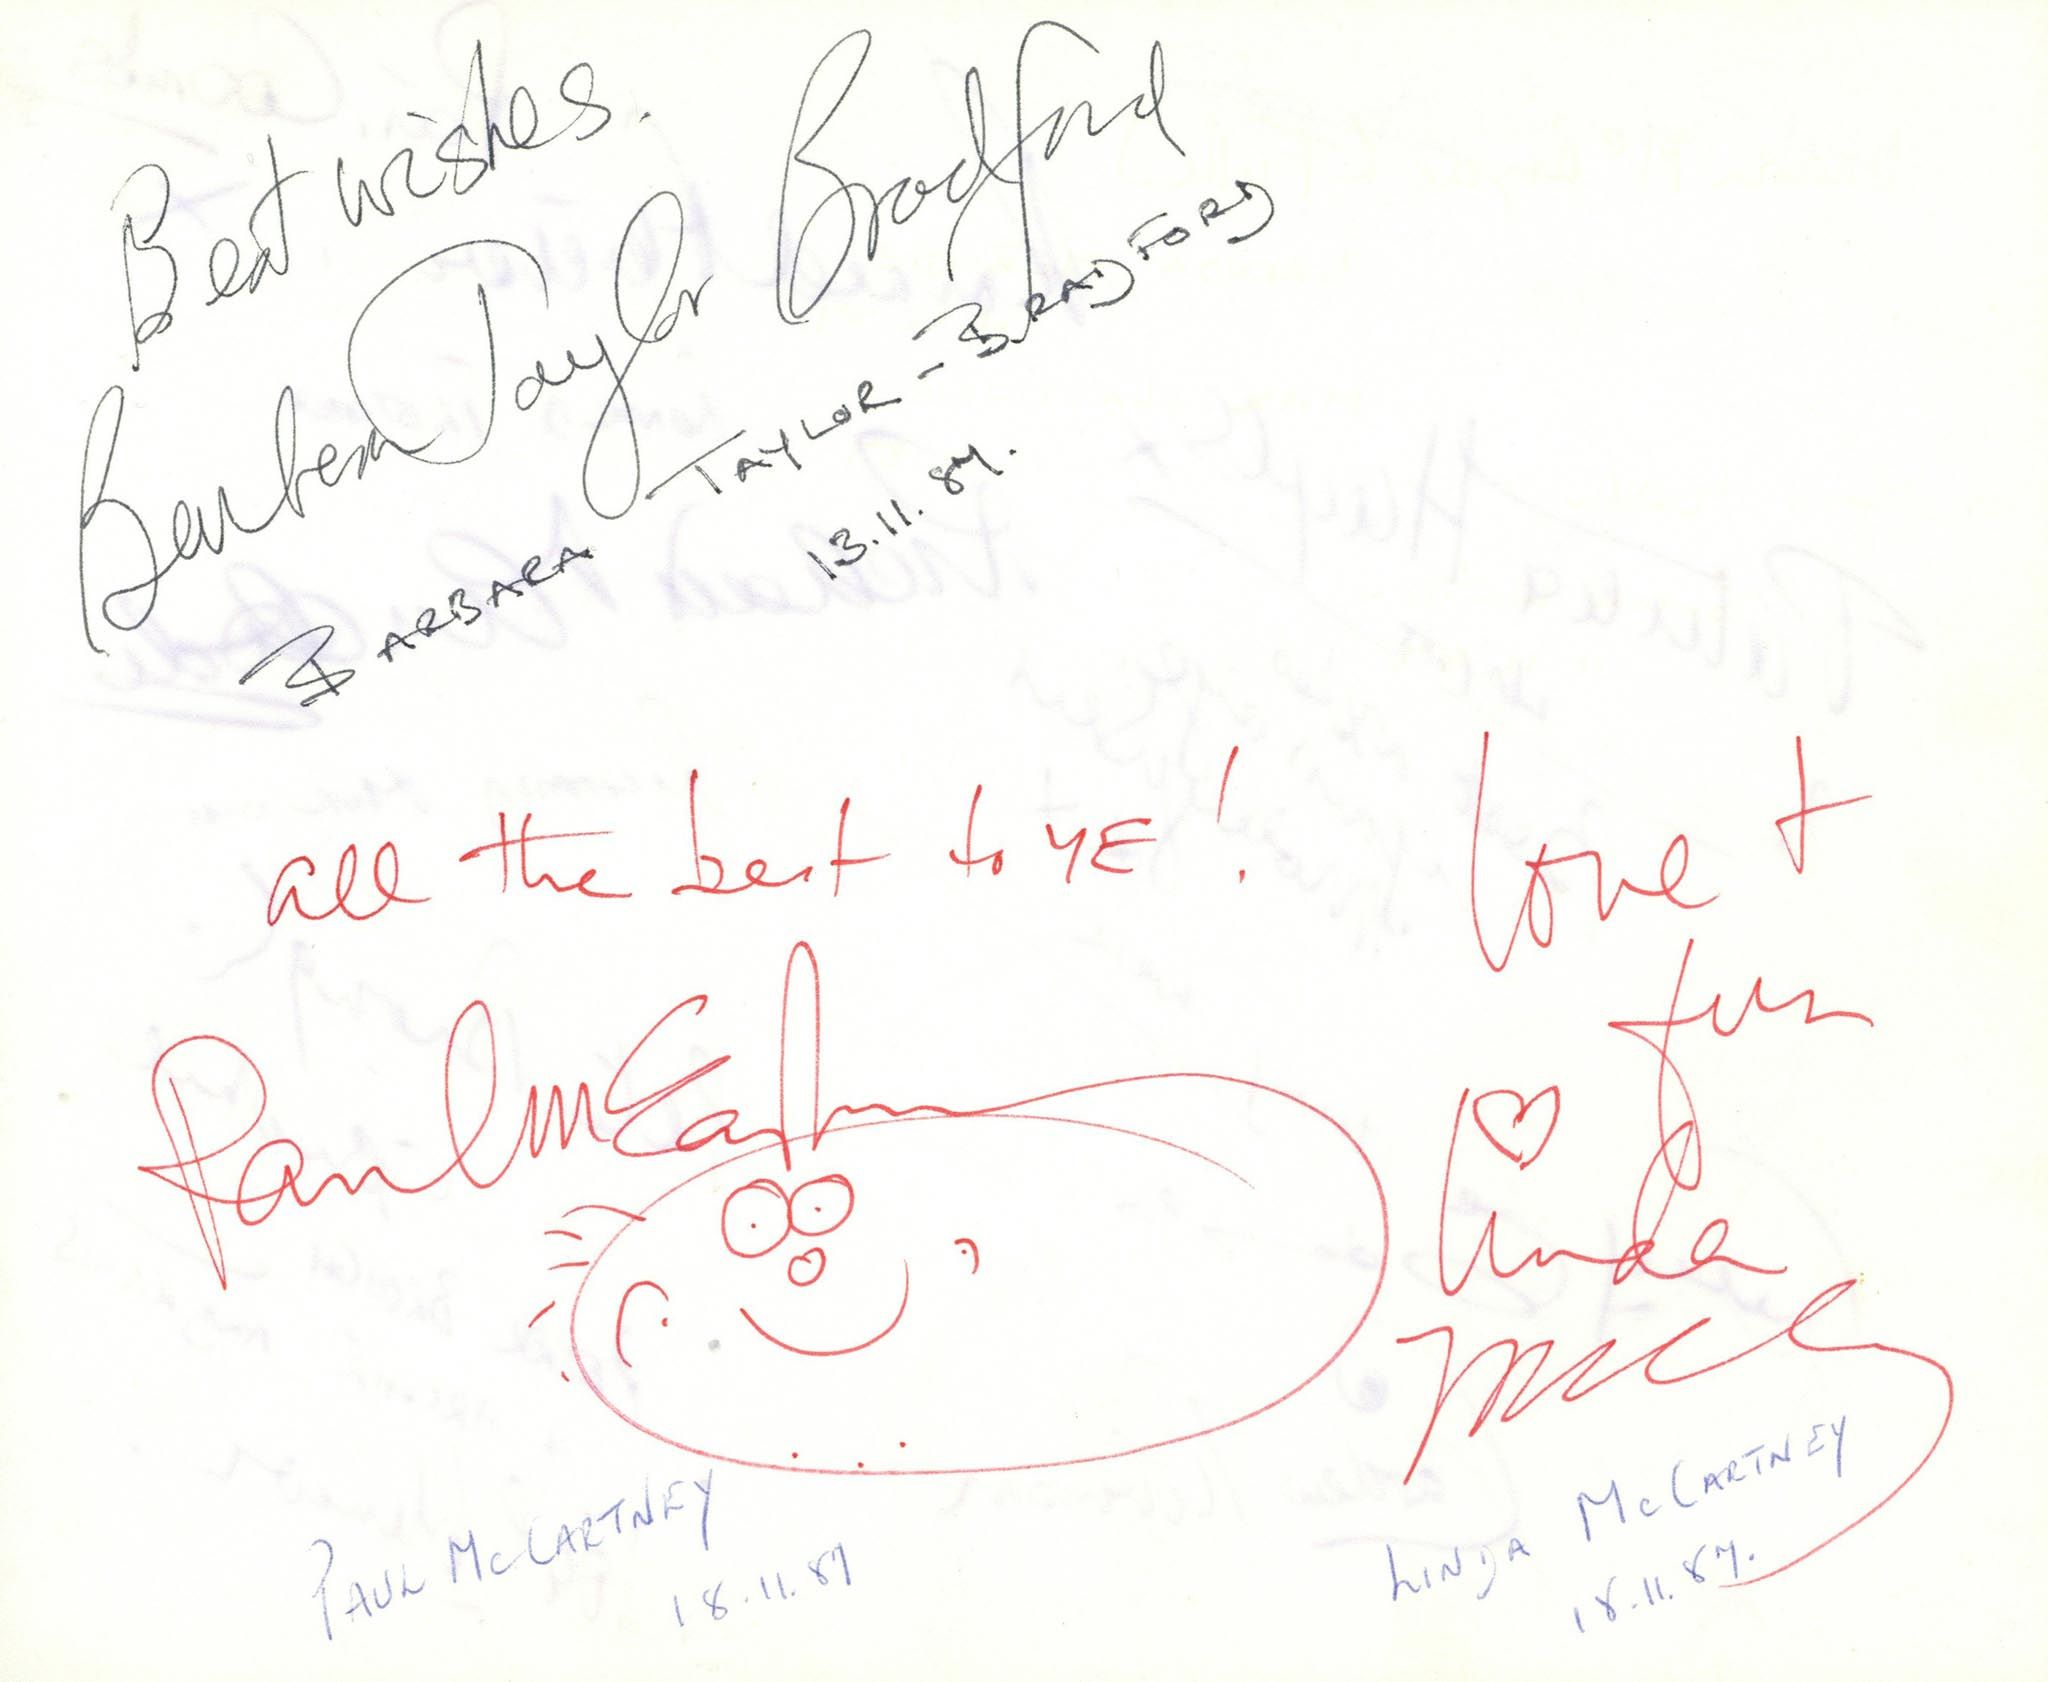 Best wishes.
Barbara Taylor Bradford
BARBARA TAYLOR-BRADFORD
13.11.87.
all the best to YE!
Paul McCartney
PAUL McCARTNEY
18.11.87
love +
fun
Linda
McC
LINDA McCARTNEY
18.11.87.